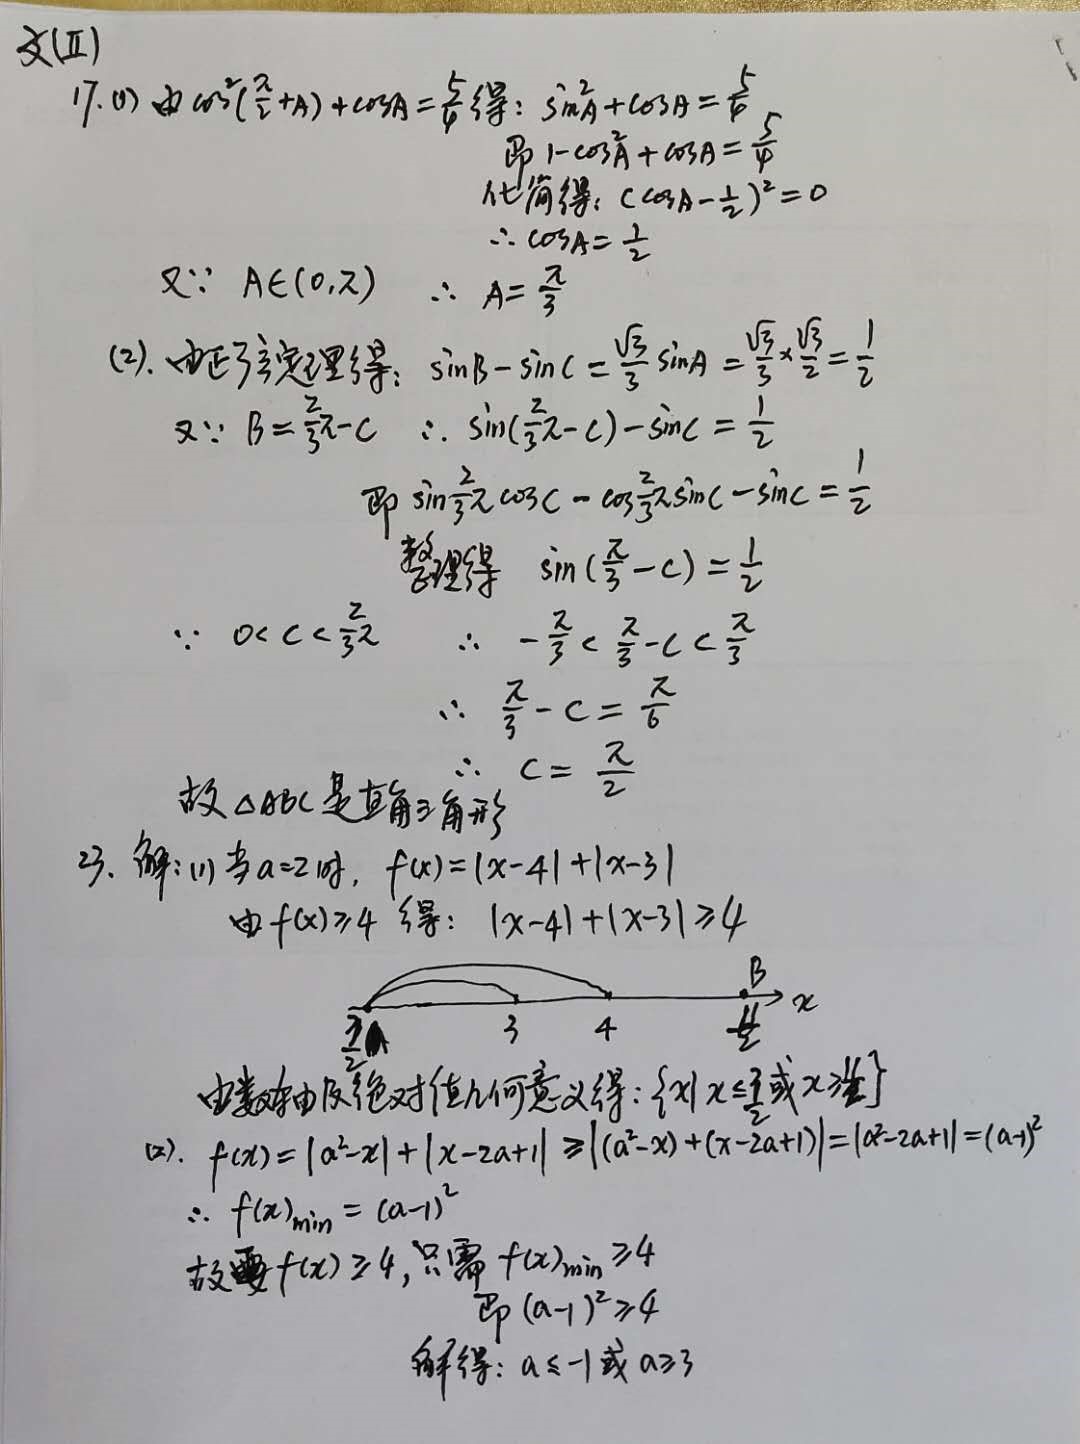 文(Ⅱ)
17.(1) 由cos²(π/2+A)+cosA=5/4得：sin²A+cosA=5/4
即1-cos²A+cosA=5/4
化简得：(cosA-1/2)²=0
∴cosA=1/2
又∵ A∈(0,π) ∴ A=π/3
(2). 由正弦定理得：sinB-sinC=√3/3 sinA=√3/3×√3/2=1/2
又∵ B=2/3π-C ∴ sin(2/3π-C)-sinC=1/2
即sin2/3πcosC-cos2/3πsinC-sinC=1/2
整理得 sin(π/3-C)=1/2
∵ 0<C<2/3π ∴ -π/3<π/3-C<π/3
∴ π/3-C=π/6
∴ C=π/2
故△ABC是直角三角形
23. 解：(1)当a=2时，f(x)=|x-4|+|x-3|
由f(x)≥4 得：|x-4|+|x-3|≥4
B
x
3/2 A 3 4 11/2
由数轴及绝对值几何意义得：{x|x≤3/2或x≥11/2}
(2). f(x)=|a²-x|+|x-2a+1|≥|(a²-x)+(x-2a+1)|=|a²-2a+1|=(a-1)²
∴ f(x)min=(a-1)²
故要f(x)≥4,只需f(x)min≥4
即(a-1)²≥4
解得：a≤-1或a≥3